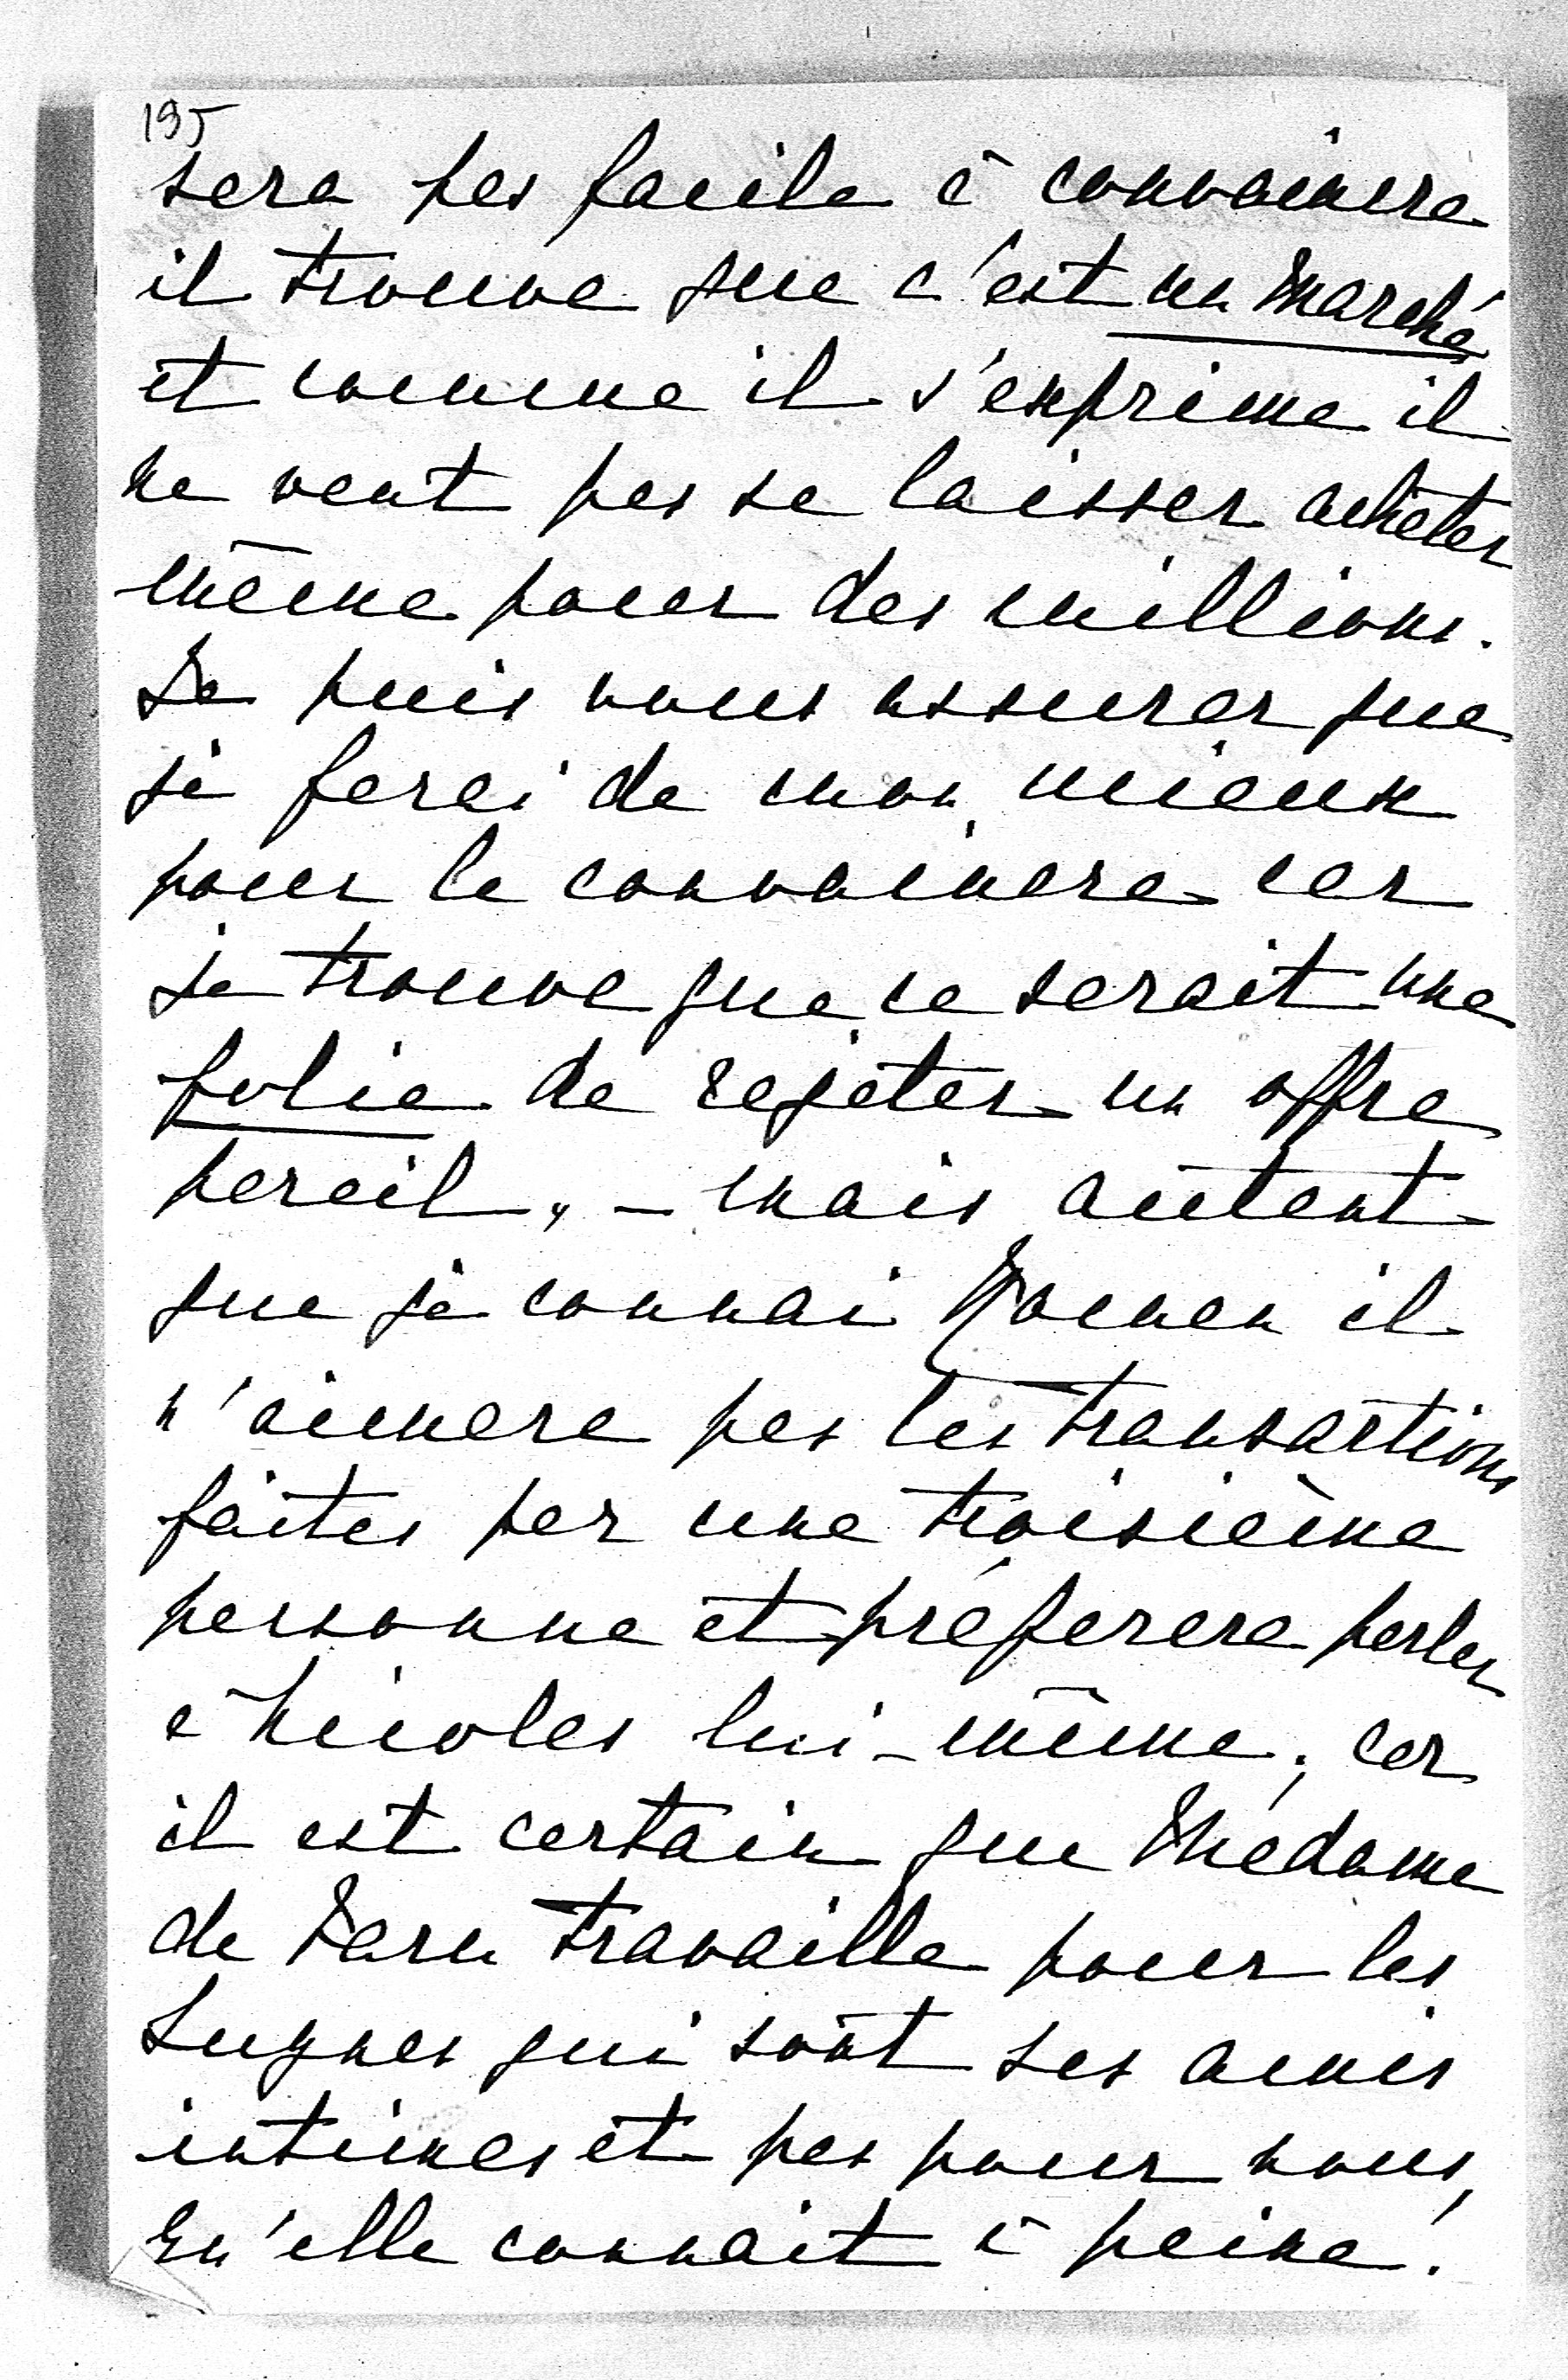 195
sera pas facile à convaincre
il trouve que c'est un marché
et comme il s'exprime il
ne veut pas se laisser acheter
même pour des millions.
Je puis vous assurer que
je ferai de mon mieux
pour le convaincre car
je trouve que ce serait une
folie de rejeter un offre
pareil, – mais autant
que je connai il
n'aimera pas les transactions
faites par une troisième
personne et préferera parler
à Nicolas lui-même, car
il est certain que Madame
de travaille pour les
qui sont ses amis
intimes et pas pour nous,
qu'elle connait à peine.